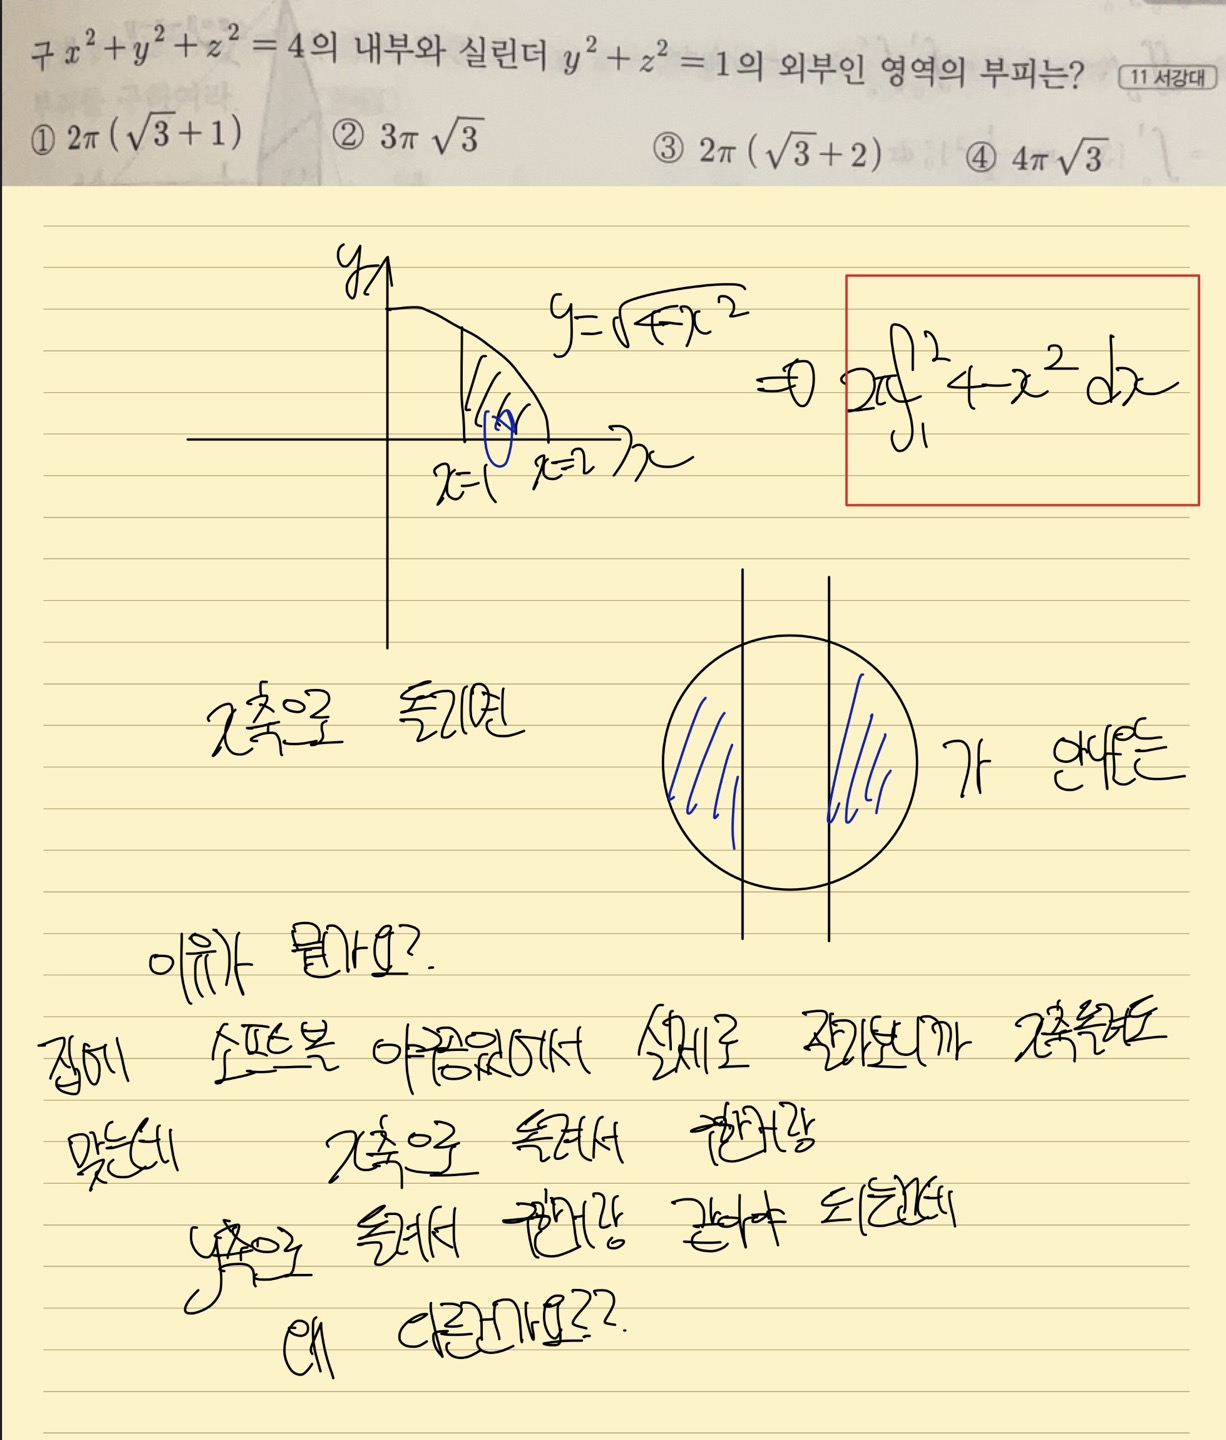 구 x²+y²+z²=4의 내부와 실린더 y²+z²=1의 외부인 영역의 부피는? 11 서강대
① 2π(√3+1) ② 3π√3 ③ 2π(√3+2) ④ 4π√3
y
y=√4-x²
⇒ 2π∫₁² 4-x² dx
x=1 x=2 x
x축으로 돌리면
가 안나오는
이유가 뭘까요?.
집에 소프트볼 야구공있어서 실제로 잘라보니까 x축돌려도
맞는데 x축으로 돌려서 구한거랑
y축으로 돌려서 구한거랑 같아야 되는건데
왜 다른건가요??.